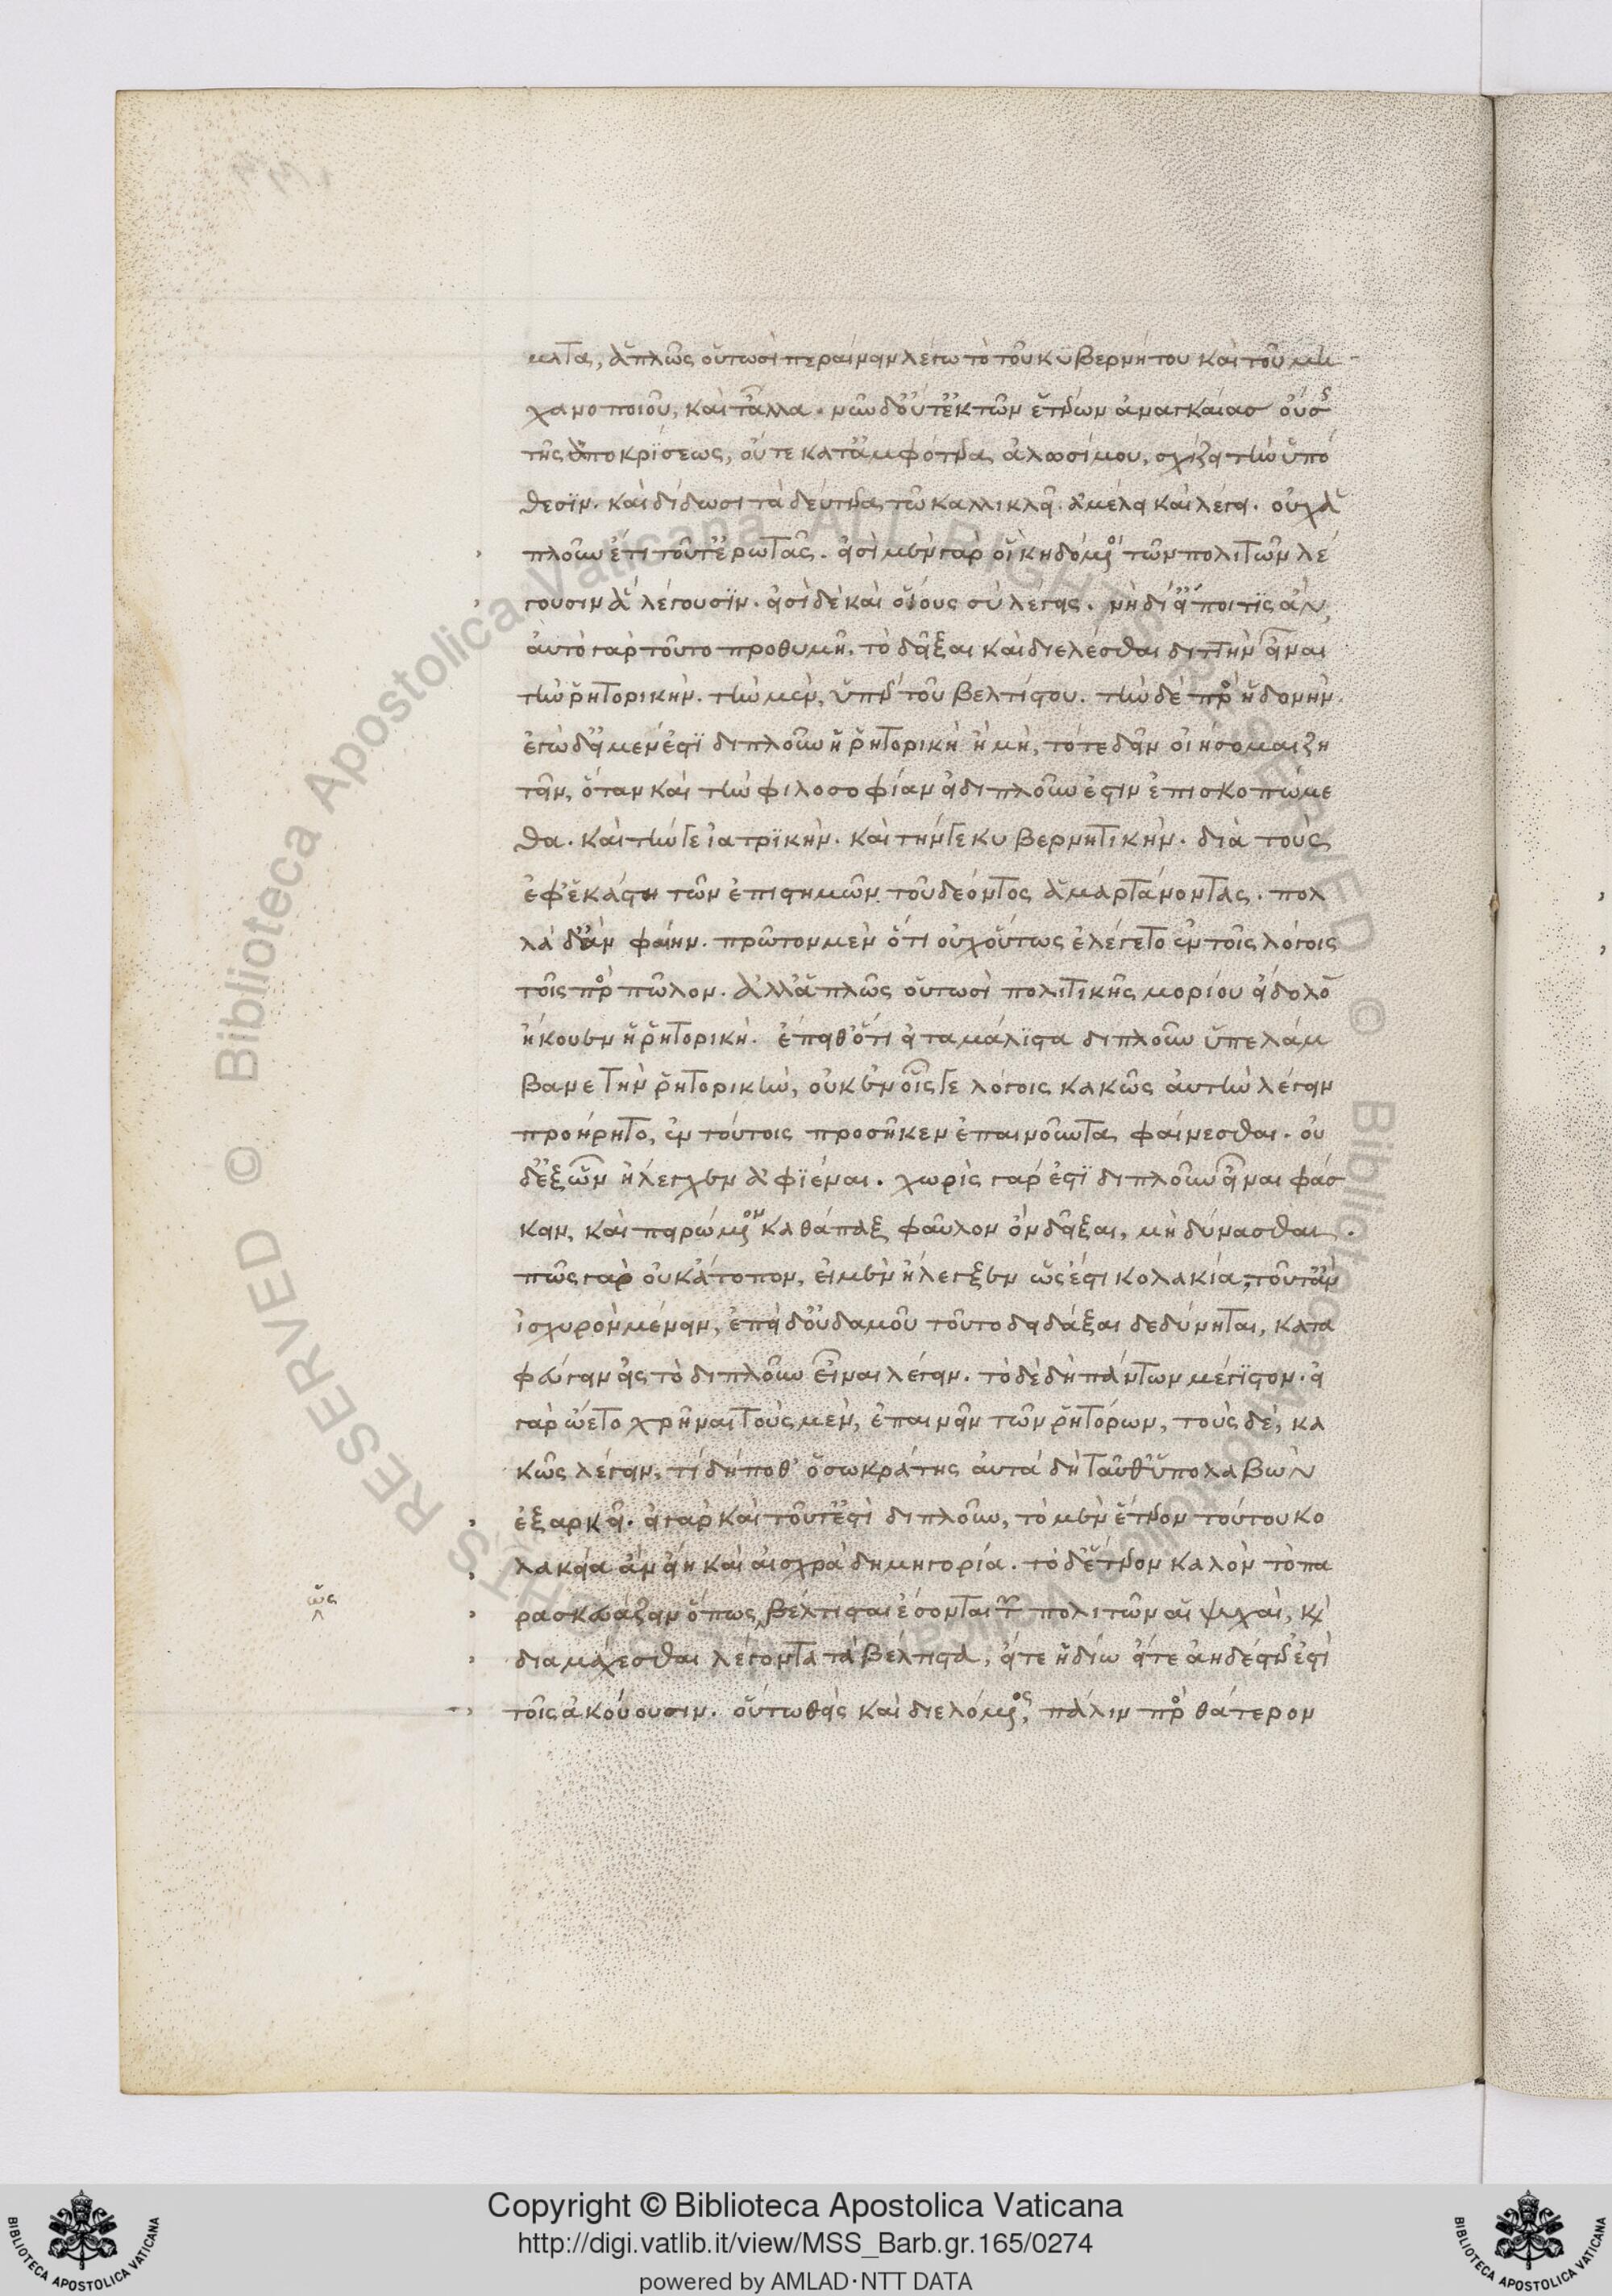 ματα, ἁπλῶς οὑτωσὶ περαίνειν λέγω τὸ τοῦ κυβερνήτου καὶ τοῦ μη
χανοποιοῦ, καὶ τἄλλα. νῦν δ' οὔτ' ἐκ τῶν ἑτέρων ἀναγκαίας οὔσης
τῆς ἀποκρίσεως, οὔτε κατ' ἀμφότερα ἁλωσίμου, σχίζει τὴν ὑπό
θεσιν. καὶ δίδωσι τὰ δεύτερα τῶ καλλικλεῖ. ἀμέλει καὶ λέγει. οὐχ ἁ
πλοῦν ἔτι τοῦτ' ἐρωτᾷς. εἰσὶ μὲν γὰρ οἳ κηδόμενοι τῶν πολιτῶν λέ
γουσιν ἃ λέγουσιν. εἰσὶ δὲ καὶ οἵους σὺ λέγεις. νὴ δί' εἴποι τις ἂν,
αὐτὸ γὰρ τοῦτο προθυμῆ. τὸ δεῖξαι καὶ διελέσθαι διττὴν εἶναι
τὴν ῥητορικήν. τὴν μὲν, ὑπὲρ τοῦ βελτίστου. τὴν δὲ πρὸς ἡδονήν.
ἐγὼ δ' εἰ μέν ἐστι διπλοῦν ἡ ῥητορικὴ ἢ μὴ, τότε δεῖν οἰήσομαι ζη
τεῖν, ὅταν καὶ τὴν φιλοσοφίαν εἰ διπλοῦν ἐστιν ἐπισκοπώμε
θα. καὶ τήν γε ἰατρικήν. καὶ τήν γε κυβερνητικήν. διὰ τοὺς
ἐφ' ἑκάστη τῶν ἐπιστημῶν τοῦ δέοντος ἁμαρτάνοντας. πολ
λὰ δ' ἂν φαίην. πρῶτον μὲν ὅτι οὐχ οὕτως ἐλέγετο ἐν τοῖς λόγοις
τοῖς πρὸς πῶλον. ἀλλ' ἁπλῶς οὑτωσὶ πολιτικῆς μορίου εἴδωλον
ἤκουεν ἡ ῥητορική. ἔπειθ' ὅτι εἰ τὰ μάλιστα διπλοῦν ὑπελάμ
βανε τὴν ῥητορικὴν, οὐκ ἐν οἷς γε λόγοις κακῶς αὐτὴν λέγειν
προήρητο, ἐν τούτοις προσῆκεν ἐπαινοῦντα φαίνεσθαι. οὐ
δ' ἐξ ὧν ἤλεγχεν ἀφιέναι. χωρὶς γάρ ἐστι διπλοῦν εἶναι φάσ
κειν, καὶ πειρώμενον καθάπαξ φαῦλον ὂν δεῖξαι, μὴ δύνασθαι.
πῶς γὰρ οὐκ ἄτοπον, εἰ μὲν ἤλεγξεν ὡς ἔστι κολακία, τοῦτ' ἂν
ἰσχυρὸν μένειν, ἐπεὶ δ' οὐδαμοῦ τοῦτο δὴ δεῖξαι δεδύνηται, κατα
φεύγειν εἰς τὸ διπλοῦν εἶναι λέγειν. τὸ δὲ δὴ πάντων μέγιστον. εἰ
γὰρ ὤετο χρῆναι τοὺς μὲν, ἐπαινεῖν τῶν ῥητόρων, τοὺς δὲ, κα
κῶς λέγειν, τί δήποθ' ὁ σωκράτης αὐτὰ δὴ ταῦθ' ὑπολαβὼν
ἐξαρκεῖ. εἰ γὰρ καὶ τοῦτ' ἐστὶ διπλοῦν, τὸ μὲν ἕτερον τούτου κο
λακεία ἂν εἴη καὶ αἰσχρὰ δημηγορία. τὸ δ' ἕτερον καλὸν τὸ πα
ρασκευάζειν ὅπως βέλτισται ἔσονται τῶν πολιτῶν αἱ ψυχαὶ, καὶ
ὡς
διαμάχεσθαι λέγοντα τὰ βέλτιστα, εἴτε ἡδίω εἴτε ἀηδέστερ' ἐστὶ
τοῖς ἀκούουσιν. οὕτωθεὶς καὶ διελόμενος, πάλιν πρὸς θάτερον